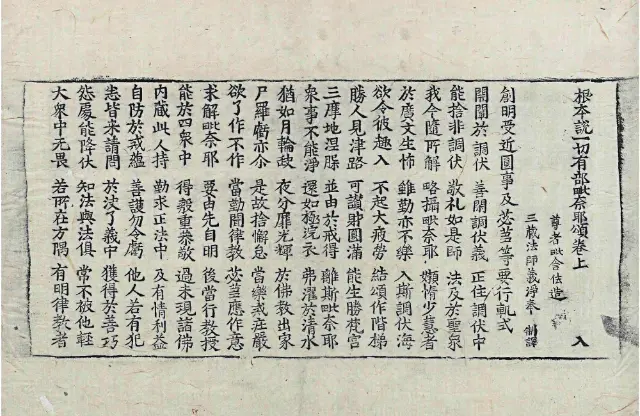 根本說一切有部毗奈耶頌卷上 入
尊者毗舍佉造
三藏法師義淨奉 制譯
創明受近圓事及苾芻等要行軌式
開闡於調伏 善閑調伏義 正住調伏中
能捨非調伏 敬礼如是師 法及於聖衆
我今隨所解 略攝毗奈耶 嬾惰少慧者
於廣文生怖 雖勤亦不樂 入斯調伏海
欲令彼趣入 不起大疲勞 結頌作階梯
勝人見津路 可讃財圓滿 能生勝梵宮
三摩地涅脲 並由於戒得 離斯毗奈耶
衆事不能淨 還如極浣衣 弗濯於清水
猶如月輪政 夜分靡光輝 於佛教出家
尸羅虧亦尒 是故捨懈怠 當樂戒莊嚴
欲了作不作 當勤聞律教 苾芻應作意
求解毗奈耶 要由先自明 後當行教授
能於四衆中 得般重恭敬 過未現諸佛
内蔵此人持 勤求正法中 及有情利益
自防於戒蘊 善護勿令虧 他人若有犯
患皆来請問 於決了義中 獲得於善巧
怨處能降伏 知法與法俱 常不被他輕
大衆中无畏 若所在方隅 有明律教者